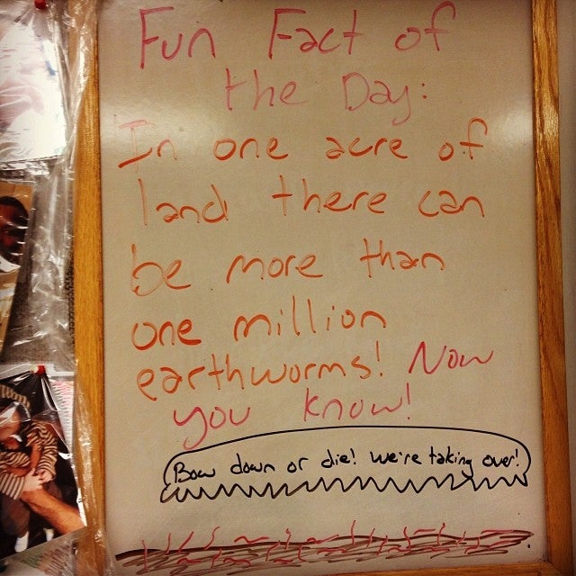 Fun Fact of
the Day:
In one acre of
land there can
be more than
one million
earthworms! Now
you know!
Bow down or die! We're taking over!